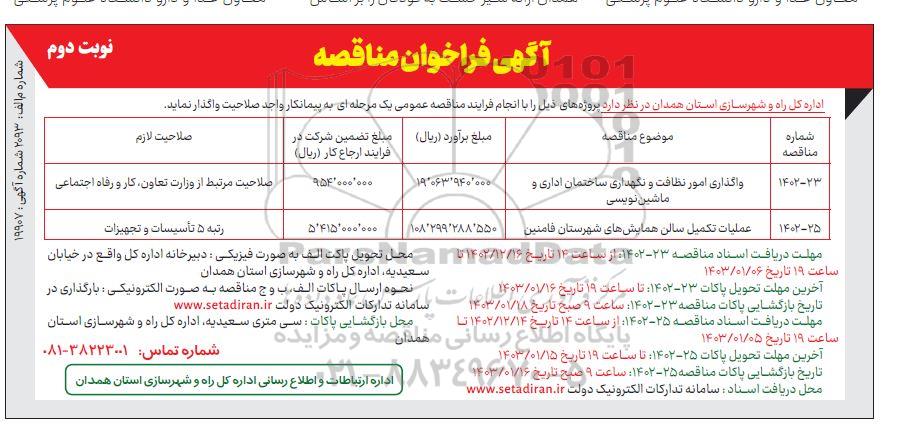 معاون غذا و دارو دانشگاه علوم پزشکی
آگهی فراخوان مناقصه
نوبت دوم
شماره م الف: ۲۰۹۳ شماره آگهی: ۱۹۹۰۷
اداره کل راه و شهرسازی استان همدان در نظر دارد پروژه‌های ذیل را با انجام فرایند مناقصه عمومی یک مرحله ای به پیمانکار واجد صلاحیت واگذار نماید.
شماره مناقصه
موضوع مناقصه
مبلغ برآورد (ریال)
مبلغ تضمین شرکت در فرایند ارجاع کار (ریال)
صلاحیت لازم
۱۴۰۲-۲۳
واگذاری امور نظافت و نگهداری ساختمان اداری و ماشین‌نویسی
۱۹٬۰۶۳٬۹۴۰٬۰۰۰
۹۵۴٬۰۰۰٬۰۰۰
صلاحیت مرتبط از وزارت تعاون، کار و رفاه اجتماعی
۱۴۰۲-۲۵
عملیات تکمیل سالن همایش‌های شهرستان فامنین
۱۰۸٬۲۹۹٬۲۸۸٬۵۵۰
۵٬۴۱۵٬۰۰۰٬۰۰۰
رتبه ۵ تأسیسات و تجهیزات
مهلت دریافت اسناد مناقصه ۲۳-۱۴۰۲: از ساعت ۱۴ تاریخ ۱۴۰۲/۱۲/۱۶ تا
ساعت ۱۹ تاریخ ۱۴۰۳/۰۱/۰۶
آخرین مهلت تحویل پاکات ۲۳-۱۴۰۲: تا ساعت ۱۹ تاریخ ۱۴۰۳/۰۱/۱۶
تاریخ بازگشایی پاکات مناقصه ۲۳-۱۴۰۲: ساعت ۹ صبح تاریخ ۱۴۰۳/۰۱/۱۸
مهلت دریافت اسناد مناقصه ۲۵-۱۴۰۲: از ساعت ۱۴ تاریخ ۱۴۰۲/۱۲/۱۴ تا
ساعت ۱۹ تاریخ ۱۴۰۳/۰۱/۰۵
آخرین مهلت تحویل پاکات ۲۵-۱۴۰۲: تا ساعت ۱۹ تاریخ ۱۴۰۳/۰۱/۱۵
تاریخ بازگشایی پاکات مناقصه ۲۵-۱۴۰۲: ساعت ۹ صبح تاریخ ۱۴۰۳/۰۱/۱۶
محل دریافت اسناد : سامانه تدارکات الکترونیک دولت www.setadiran.ir
محل تحویل پاکت الف به صورت فیزیکی : دبیرخانه اداره کل واقع در خیابان
سعیدیه، اداره کل راه و شهرسازی استان همدان
نحوه ارسال پاکات الف، ب و ج مناقصه به صورت الکترونیکی: بارگذاری در
سامانه تدارکات الکترونیک دولت www.setadiran.ir
محل بازگشایی پاکات : سی متری سعیدیه، اداره کل راه و شهرسازی استان
همدان
شماره تماس: ۳۸۲۲۳۰۰۱-۰۸۱
اداره ارتباطات و اطلاع رسانی اداره کل راه و شهرسازی استان همدان
ParsNamadData
پایگاه اطلاع رسانی مناقصه و مزایده
۰۲۱-۸۸۳۴۹۶۷۰-۵